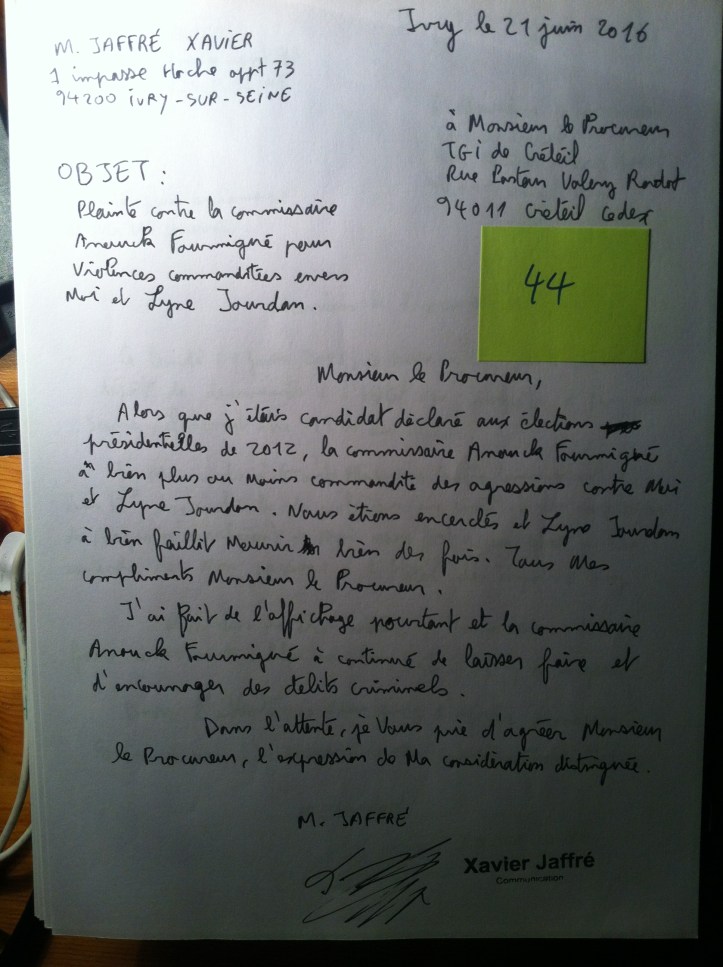 Ivry le 21 juin 2016
M. JAFFRÉ XAVIER
1 impasse Hoche appt 73
94200 IVRY-SUR-SEINE
à Monsieur le Procureur
TGI de Créteil
Rue Pasteur Valery Radot
94011 Créteil cedex
OBJET :
Plainte contre la commissaire
Anouck Fourmigué pour
Violences commanditées envers
Moi et Lyne Jourdan.
44
Monsieur le Procureur,
Alors que j'étais candidat déclaré aux élections
présidentielles de 2012, la commissaire Anouck Fourmigué
à bien plus ou moins commandité des agressions contre Moi
et Lyne Jourdan. Nous étions encerclés et Lyne Jourdan
à bien faillit Mourir bien des fois. Tous mes
compliments Monsieur le Procureur.
J'ai fait de l'affichage pourtant et la commissaire
Anouck Fourmigué à continué de laisser faire et
d'encourager des délits criminels.
Dans l'attente, je Vous prie d'agréer Monsieur
le Procureur, l'expression de Ma considération distinguée.
M. JAFFRÉ
Xavier Jaffré
Communication